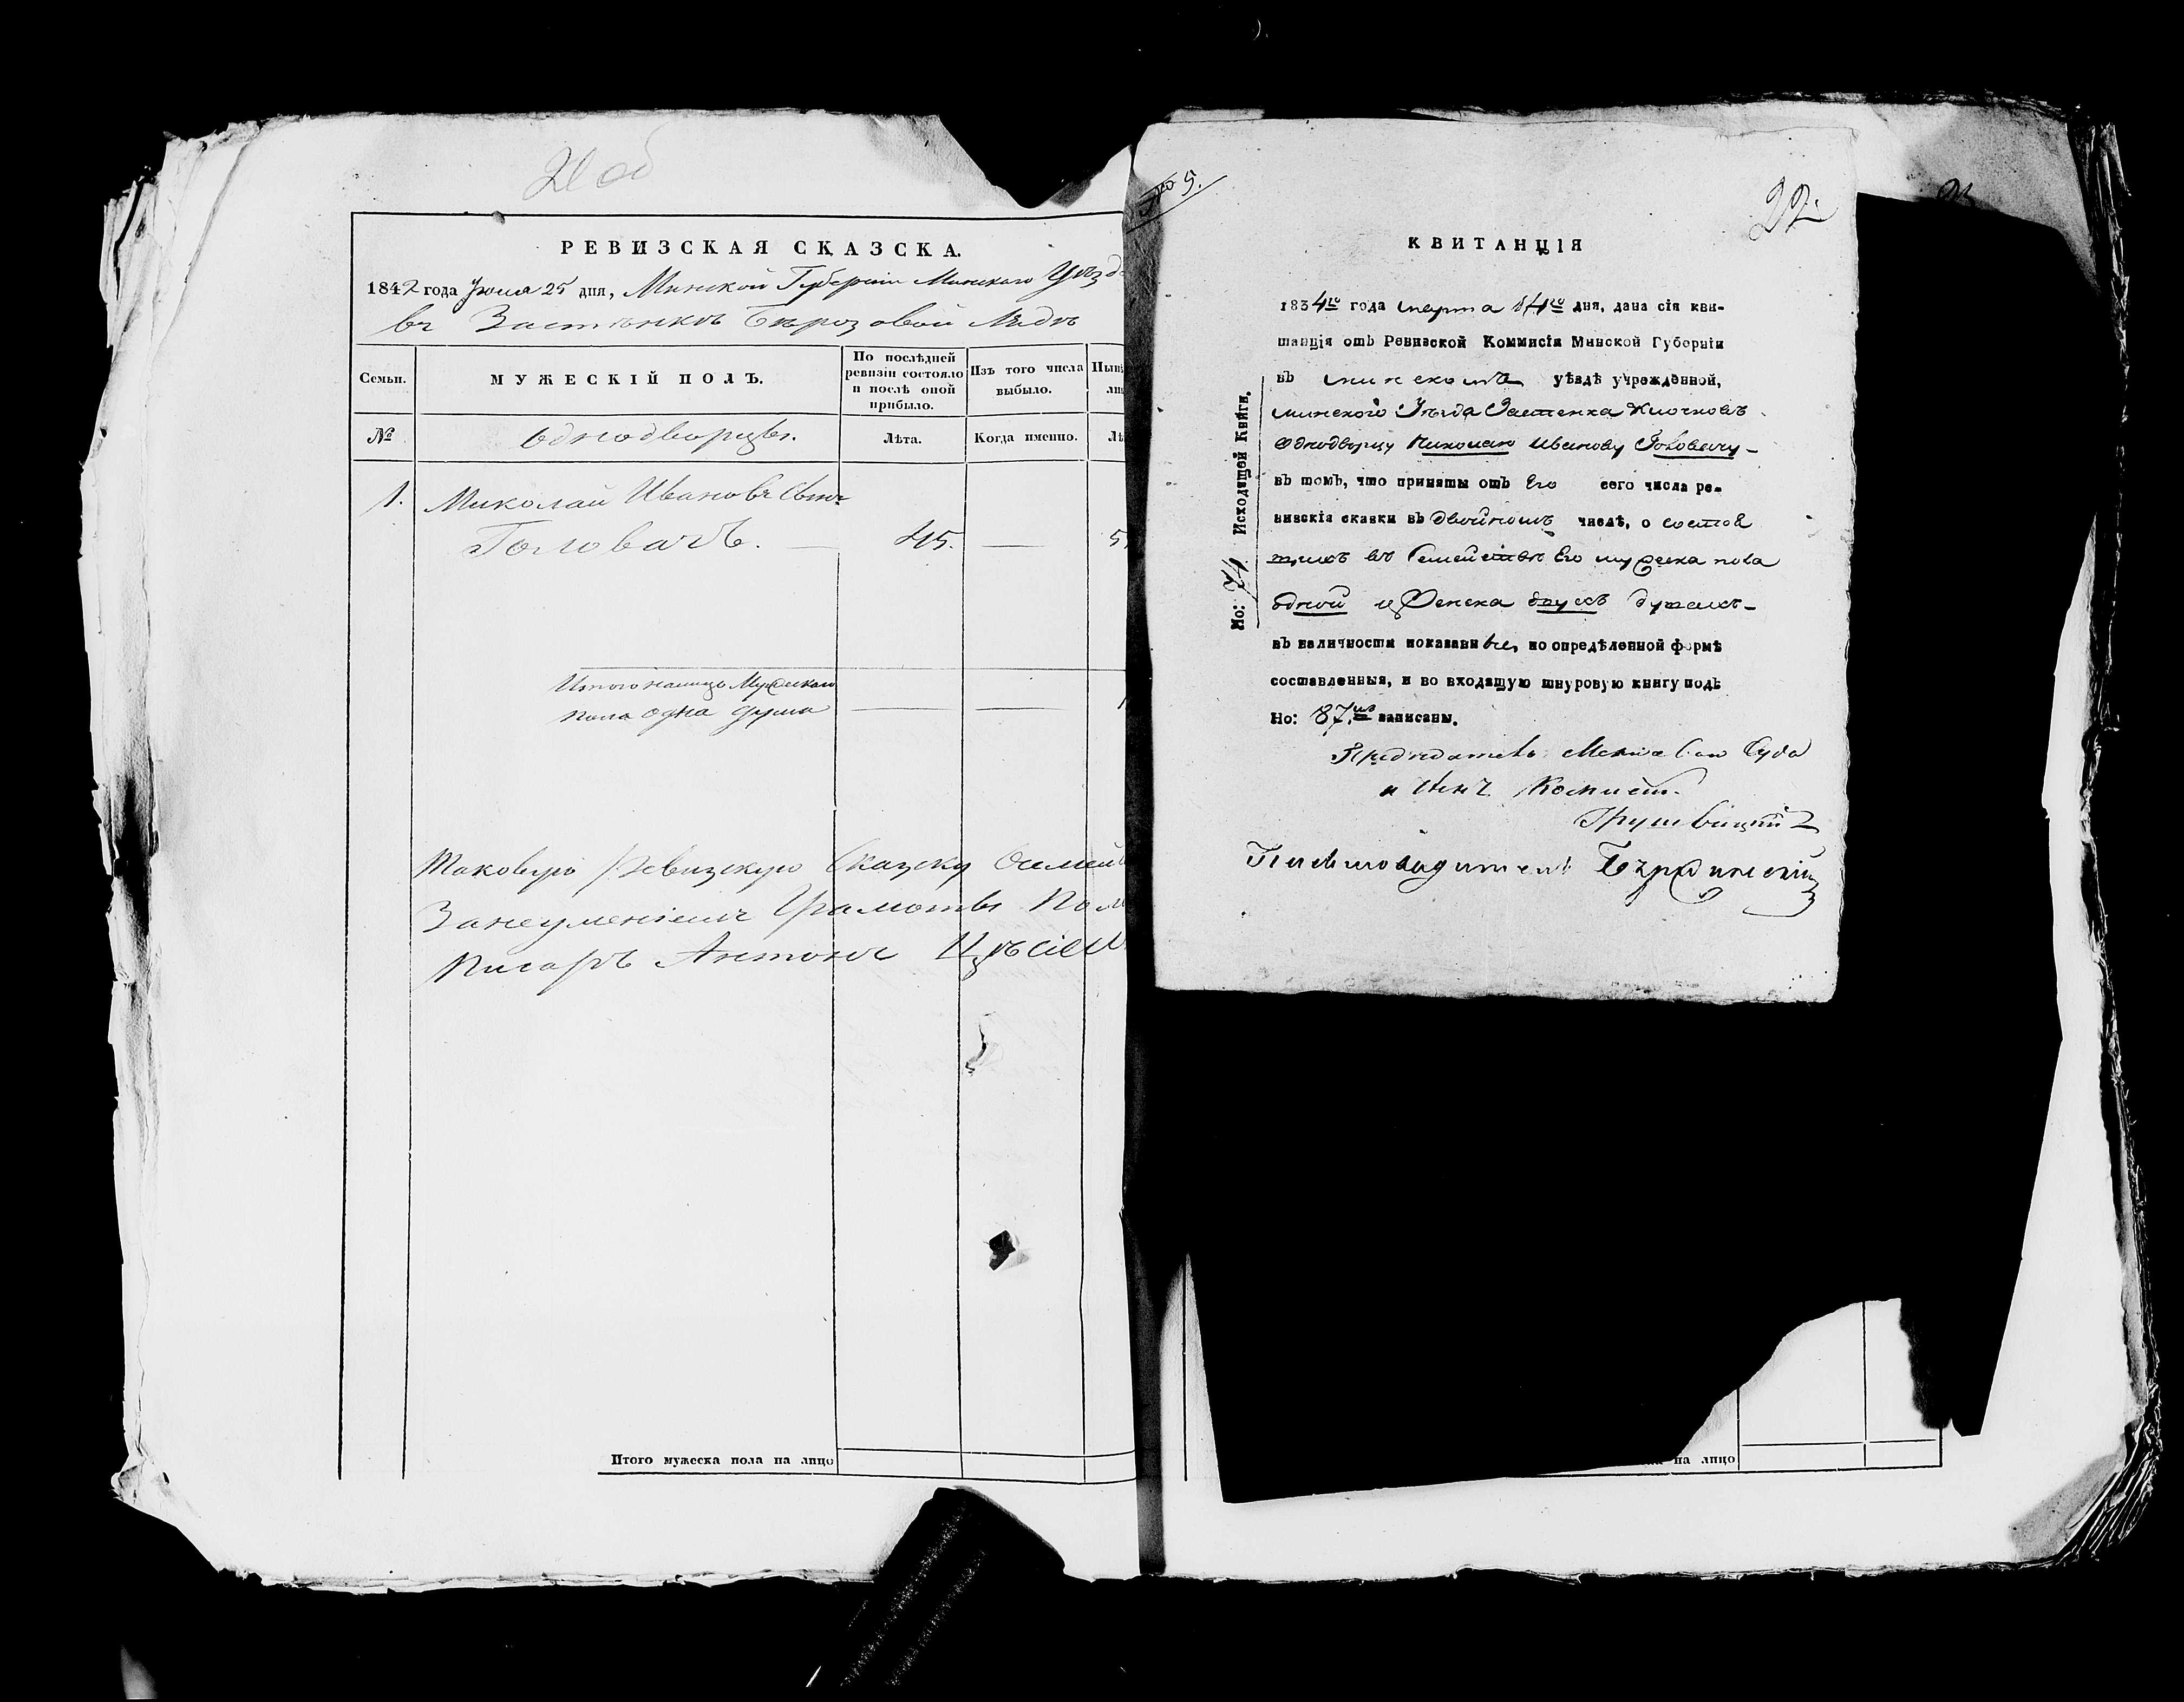 21 об
РЕВИЗСКАЯ СКАЗСКА.
1842 года Июня 25 дня, Минской Губерніи Минскаго Уѣзд
въ Застѣнкѣ Бѣрозовой Лядѣ
Семьи.
МУЖЕСКІЙ ПОЛЪ.
По послѣдней ревизіи состояло и послѣ оной прибыло.
Изъ того числа выбыло.
№
Однодворцы.
Лѣта.
Когда именно.
1. Миколай Ивановъ Сынъ
Головачъ. — 45. —
Итого налицо Мужескаго
пола одна душа
Таковую Ревизскую Сказку
Занеуменіемъ Грамоты
Писарь Антонъ
Итого мужеска пола на лицо
№ 5.
22.
КВИТАНЦІЯ
1834го года марта 14го дня, дана сія кви-
танція отъ Ревизской Коммисіи Минской Губерніи
въ минскомъ уѣздѣ учрежденной,
минского Уѣзда Застенка Клочковъ
Однодворцу Николаю Иванову Головачу —
въ томъ, что приняты отъ Его сего числа ре-
визскія сказки въ двойномъ числѣ, о состоя
щихъ въ Семействѣ Его мужеска пола
одной и женска двухъ душахъ —
въ наличности показанные, по опредѣленной формѣ
составленныя, и во входящую шнуровую книгу подъ
Но: 87.мъ записаны.
Но: 74 Исходящей Книги.
Предсѣдатель
Суда
Грушвицкій
Письмоводитель
на лицо